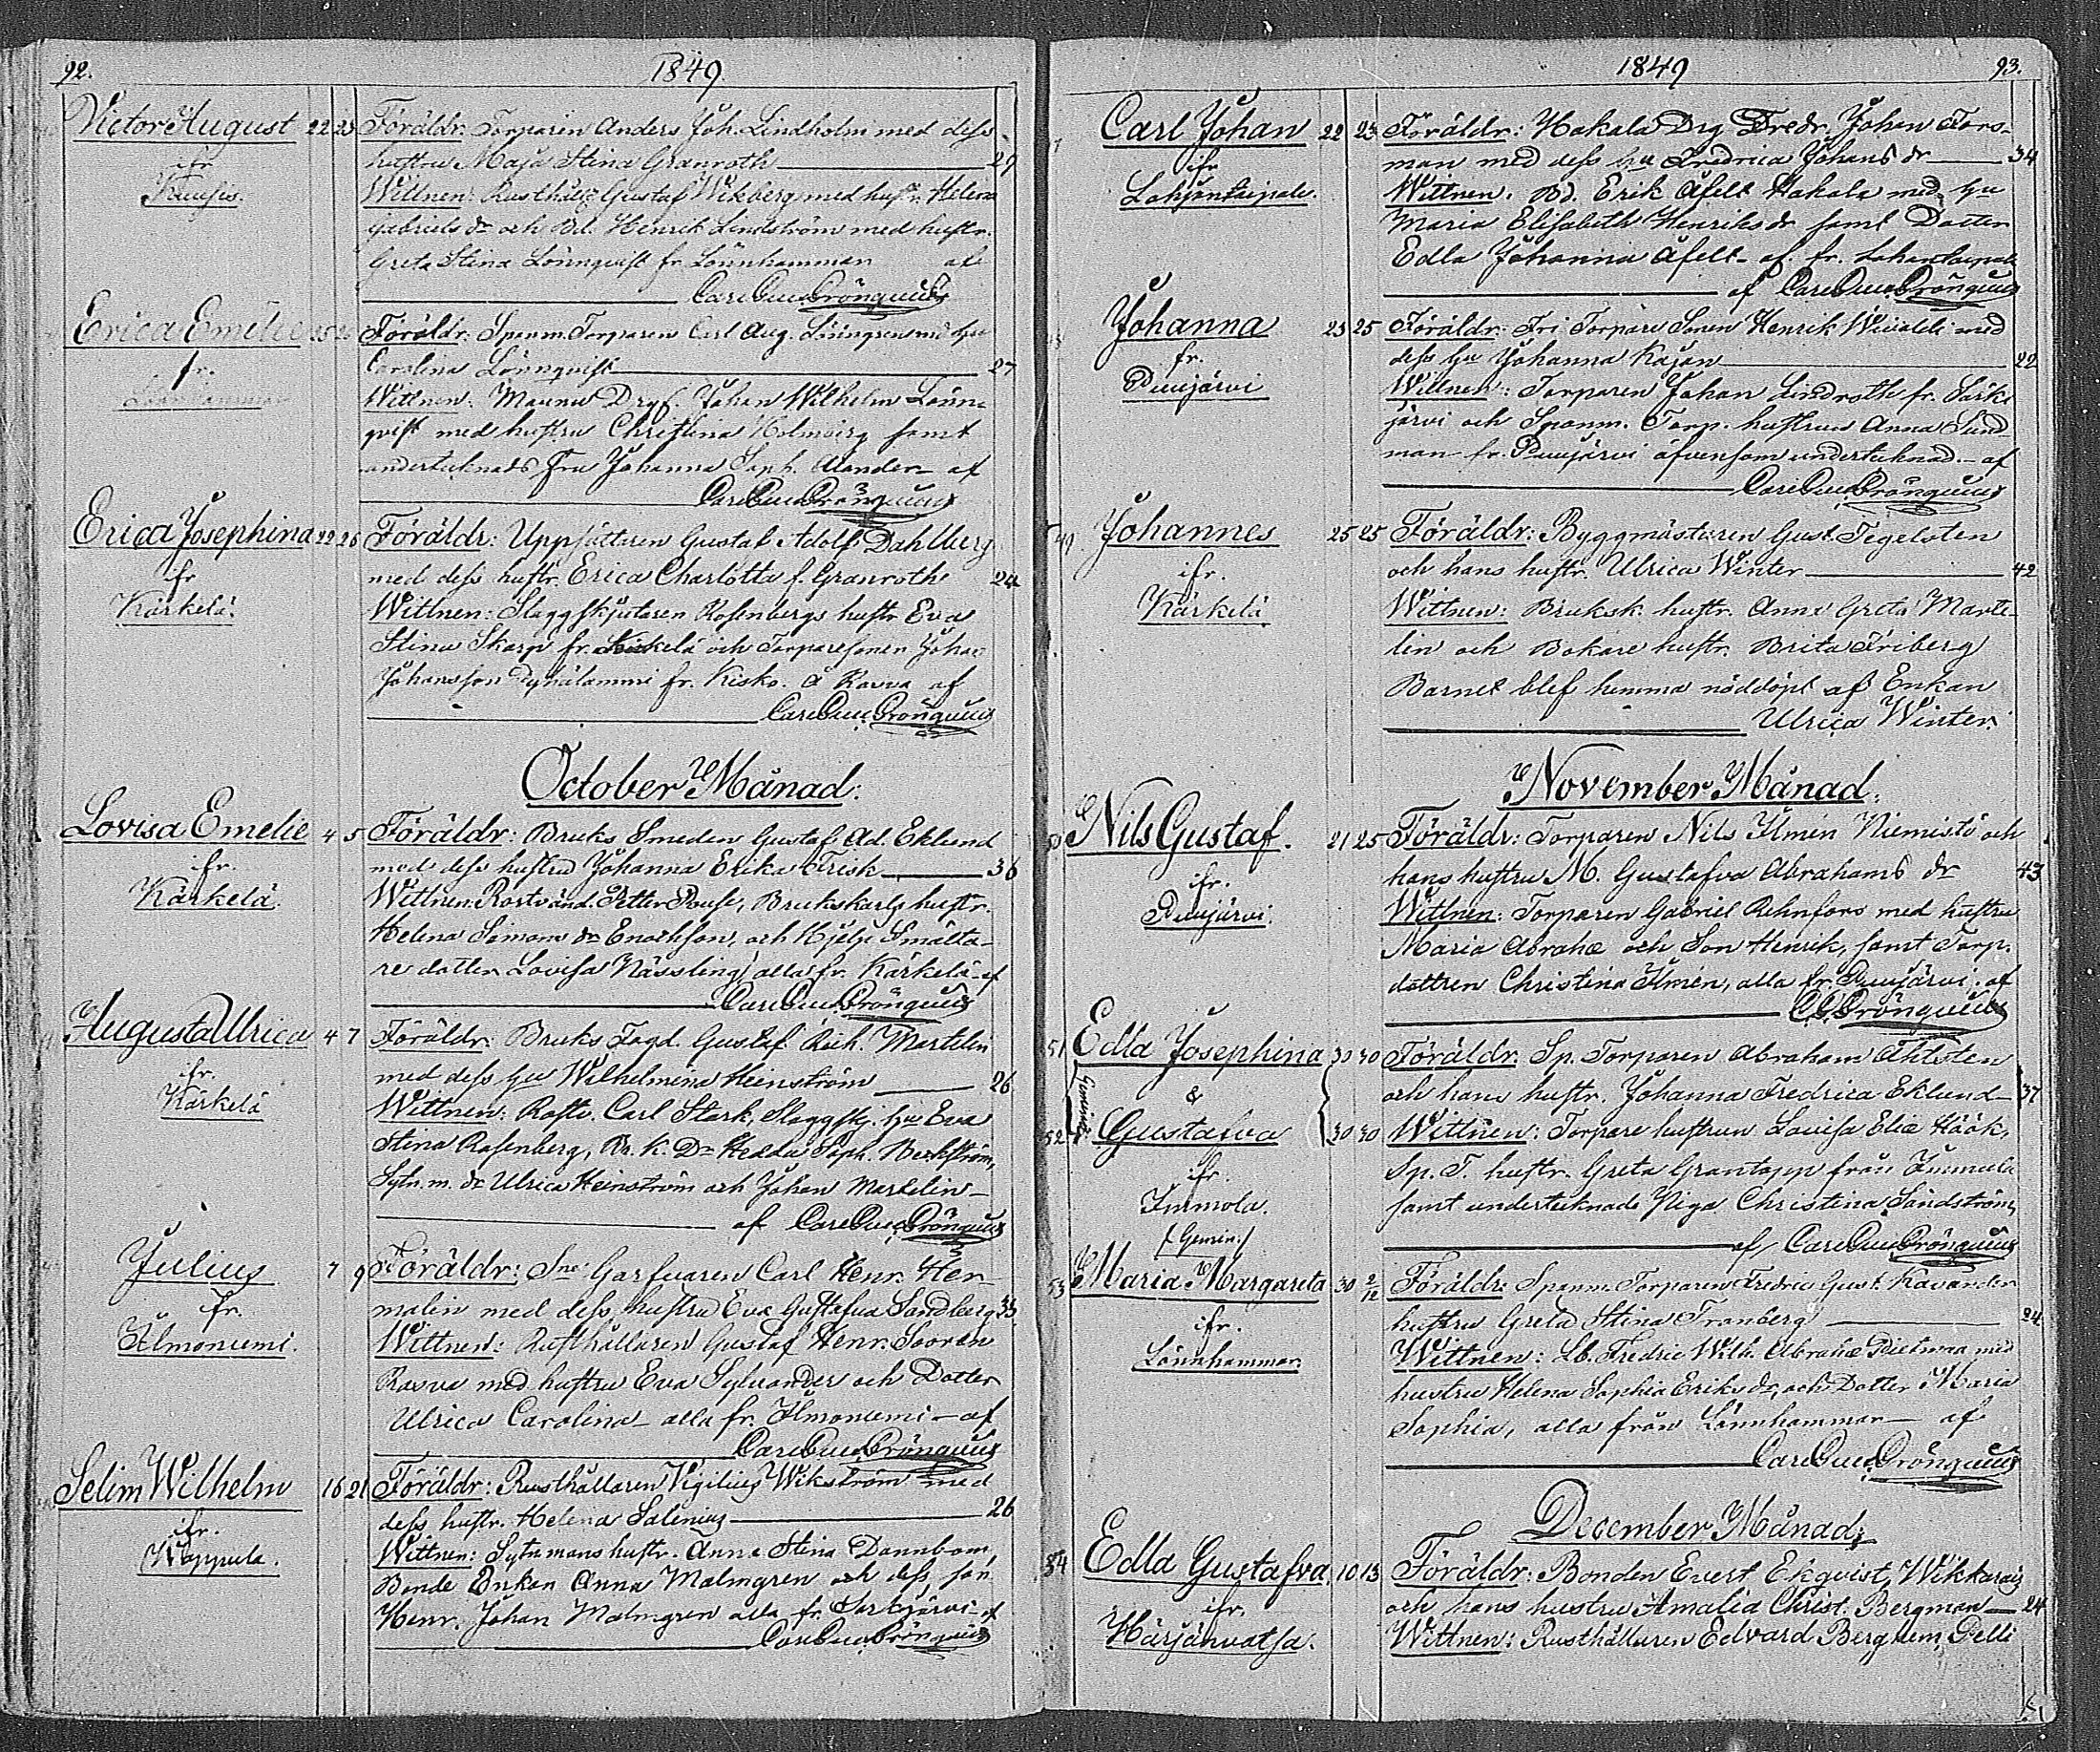 92.
1849
Victor August 22 23 Föräldr: Torparen Anders Joh. Lindholm med dess
ifr
hustru Maja Stina Granroth 29
Wittnen: Rusthåll. Gustaf Wikberg med hustr. Helena
Gabriels dr och Bd. Henrik Lindström med hustr.
Greta Stina Lönnqvist fr. Lönnhammar af
Erica Emelie 25 Föräldr: Spanm. Torparen Carl Aug. Löfngren md hu
fr.
Lönnhammar
Carolina Lönnqvist 27
Wittnen: Johan Wilhelm Lönn-
qvist med hustru Christina Holmberg samt
undertecknads Fru Johanna Soph. Alander af
Erica Josephina 22 26 Föräldr: Uppsättaren Gustaf Adolf Dahlberg
ifr
Kärkelä.
med dess hustr. Erica Charlotta f. Granroth 24
Wittnen: Slaggskjutaren Rosenbergs hustr Eva
Stina Skarp fr. Kärkelä och Torparesonen Johan
Johansson fr. Kisko. af
October Månad.
Lovisa Emelie 4 5 Föräldr: Bruks Smeden Gustaf Ad. Eklund
ifr.
Kärkelä.
med dess hustru Johanna Erika Frisk 36
Wittnen: Rostvänd. Petter Rouse, Brukskarls hustr.
Helena Simons dr Enochson, och Hjelp Smälta-
re dotter Lovisa Nässling, alla fr. Kärkelä af
Augusta Ulrica 4 7 Föräldr: Bruks Fogd. Gustaf Rich. Martelin
ifr.
Kärkelä
med dess hu Wilhelmina Heinström 26
Wittnen: Rostv. Carl Stark, Slaggskj. hu Eva
Stina Rosenberg, B. k. Dr Hedda Soph. Berkström,
Sytn. m. dr Ulrica Heinström och Johan Martelin
af
Julius 7 9 Föräldr: Sne Garfvaren Carl Henr. Her-
fr.
Ilmoniemi.
malin med dess hustru Eva Gustafva Sandberg 33
Wittnen: Rusthållaren Gustaf Henr: Sooren
Ravva med hustru Eva Sylvander och Dotter
Ulrica Carolina alla fr. Ilmoniemi af
Selim Wilhelm 16 21 Föräldr: Rusthållaren Vigilius Wikström med
ifr.
Woppula.
dess hustr. Helena Salenius 26
Wittnen: Sytnmans hustr. Anna Stina Dannbom,
Bonde Enkan Anna Malmgren och dess son
Henr. Johan Malmgren alla fr. Särkjärvi af
1849
93.
Carl Johan 22 23 Föräldr: Hakala Drg Fredr. Johan Fors-
ifr
Lohjantaipale.
man med dess hu Fredrica Johans dr 34
Wittnen. Bd. Erik Äfelt Hakala med hu
Maria Elisabeth Henriks dr samt Dotter
Edla Johanna Äfelt af. fr. Lohjantaipale
af
Johanna 23 25 Föräldr: Fri Torpare Sonen Henrik med
fr.
Puujärvi
dess hu Johanna Kajan 22
Wittnen: Torparen Johan Lindroth fr. Särki
järvi och Spanm. Torp. hustrun Anna Sund-
man fr. Puujärvi äfvensom undertecknad. af
49 Johannes 25 25 Föräldr: Byggmästaren Gust. Tegelsten
ifr.
Kärkelä
och hans hustr. Ulrica Winter 42
Wittnen: Bruksk. hustr. Anna Greta Marte-
lin och Bokare hustr. Brita Friberg
Barnet blef hemma nöddöpt af Enkan
Ulrica Winter.
November Månad.
50 Nils Gustaf. 21 25 Föräldr: Torparen Nils Ilmén Niemistö och
ifr.
Puujärvi.
hans hustru M. Gustafva Abrahams dr 43
Wittnen: Torparen Gabriel Rehnfors med hustru
Maria Abrahe och Son Henrik, samt Torp.
dottren Christina Ilmén, alla fr. Puujärvi. af
51 Edla Josephina 30 30 Föräldr: Sp. Torparen Abraham Ahlsten
&
och hans hustr. Johanna Fredrica Eklund 37
52 Gustafva 30 30 Wittnen: Torpare hustrun Lovisa Elie Höök,
ifr.
Immola.
Sp. T. hustr. Greta Grantopp från Immula
samt undertecknads Piga Christina Sandström,
/Gemin./
af
53 Maria Margareta 30 2/12 Föräldr: Spanm. Torparen Fredric Gust. Kavander
ifr.
Lönnhammar.
hustru Greta Stina Tranberg 24
Wittnen: Lb. Fredric Wilh. Abrahe med
hustru Helena Sophia Eriks dr, och Dotter Maria
Sophia, alla från Lönnhammar af
December Månad,
54 Edla Gustafva 10 13 Föräldr: Bonden Evert Ekqvist,
ifr.
Härjänvatsa.
och hans hustru Amalia Christ. Bergman 24
Wittnen: Rusthållaren Edvard Berghem, Pelli